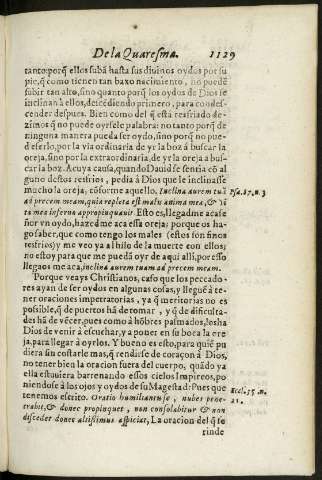 De la Quaresma. 1129
tanto: porq̃ ellos subã hasta sus diuinos oydos por su
pie, q̃ como tienen tan baxo nacimiento, no puedẽ
subir tan alto, sino quanto porq̃ los oydos de Dios se
inclinan à ellos, descẽdiendo primero, para condes-
cender despues. Bien como del q̃ està resfriado de-
zimos q̃ no puede oyrse le palabra: no tanto porq̃ de
ninguna manera pueda ser oydo, sino porq̃ no pue-
de serlo, por la via ordinaria de yr la boz à buscar la
oreja, sino por la extraordinaria, de yr la oreja à bus-
car la boz. A cuya causa, quando Dauid se sentia cõ al
guno destos resfrios, pedia à Dios que le inclinasse
mucho la oreja; cõforme aquello, Inclina aurem tuã
ad precem meam, quia repleta est malis anima mea, & vi
ta mea inferno appropinquauit. Esto es, llegadme aca se
ñor vn oydo, hazed me aca essa oreja; porque os ha-
go saber, que como tengo los males (estos son vnos
resfrios) y me veo ya al hilo de la muerte con ellos;
no estoy para que me puedã oyr de aqui alli, por esso
llegaos me aca, inclina aurem tuam ad precem meam.
Porque veays Christianos, caso que los peccado-
res ayan de ser oydos en algunas cosas, y lleguẽ à te-
ner oraciones impetratorias, ya q̃ meritorias no es
possible, q̃ de puertos hã de tomar, y q̃ de dificulta-
des hã de vẽcer, pues como à hõbres pasmados, les ha
Dios de venir à escuchar, y a poner en su boca la ore
ja, para llegar à oyrlos. Y bueno es esto, para quiẽ pu
diera sin costarle mas, q̃ rendirse de coraçon à Dios,
no tener bien la oracion fuera del cuerpo, quãdo ya
ella estuuiera barrenando essos cielos Impireos, po
niendose à los ojos y oydos de su Magestad: Pues que
tenemos escrito. Oratio humiliantis se, nubes pene-
trabit, & donec propinquet, non consolabitur & non
discedet donec altissimus aspiciat, La oracion del q̃ se
rinde
Psa. 87. n. 3
Eccl. 35. n.
21.